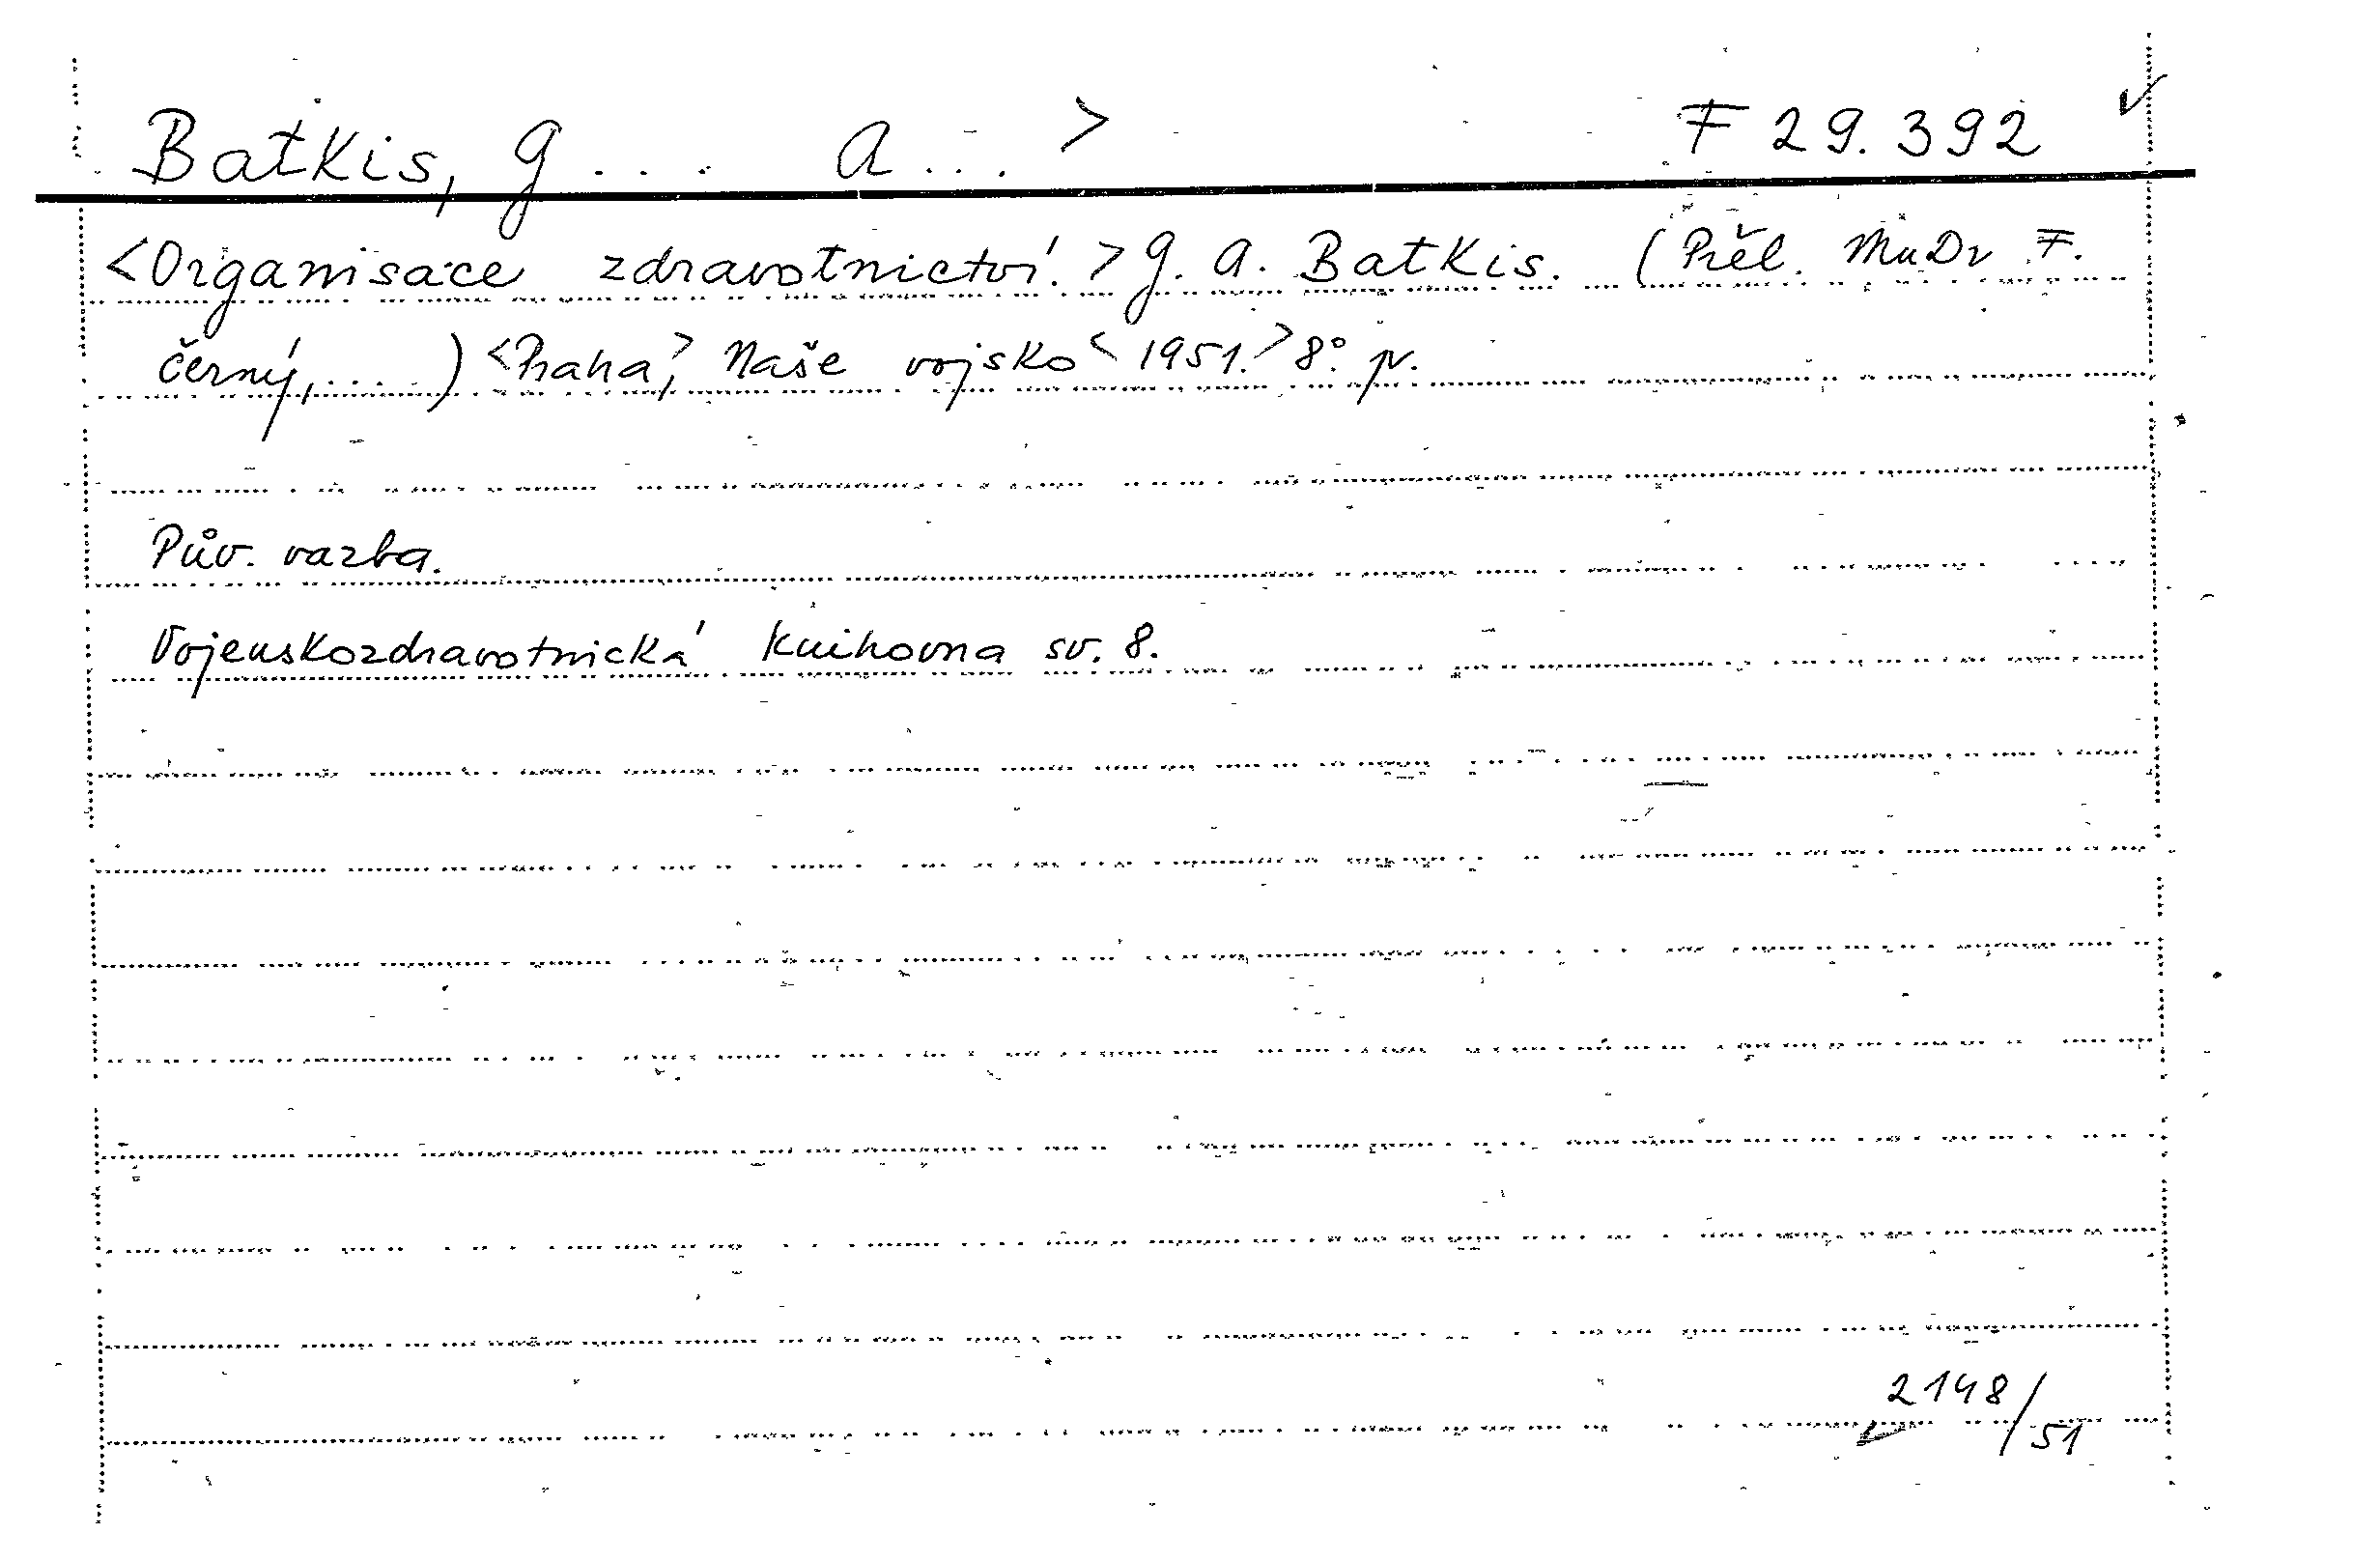 Batkis, G... A...> F 29.392
<Organisace zdravotnictví.> G. A. Batkis. (Přel. MuDr F.
Černý,.....) <Praha,> Naše vojsko <1951.> 8°. pv.
Pův. vazba.
Vojenskozdravotnická knihovna sv. 8.
2148/51